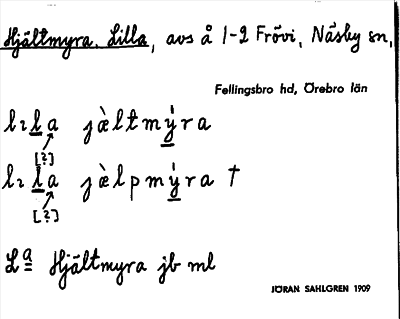 Hjältmyra. Lilla, avs å 1-2 Frövi, Näsby sn,
Fellingsbro hd, Örebro län
lıla jæ̀ltmýra
[?]
lıla jæ̀lpmýra †
[?]
Lª Hjältmyra jb ml
JÖRAN SAHLGREN 1909